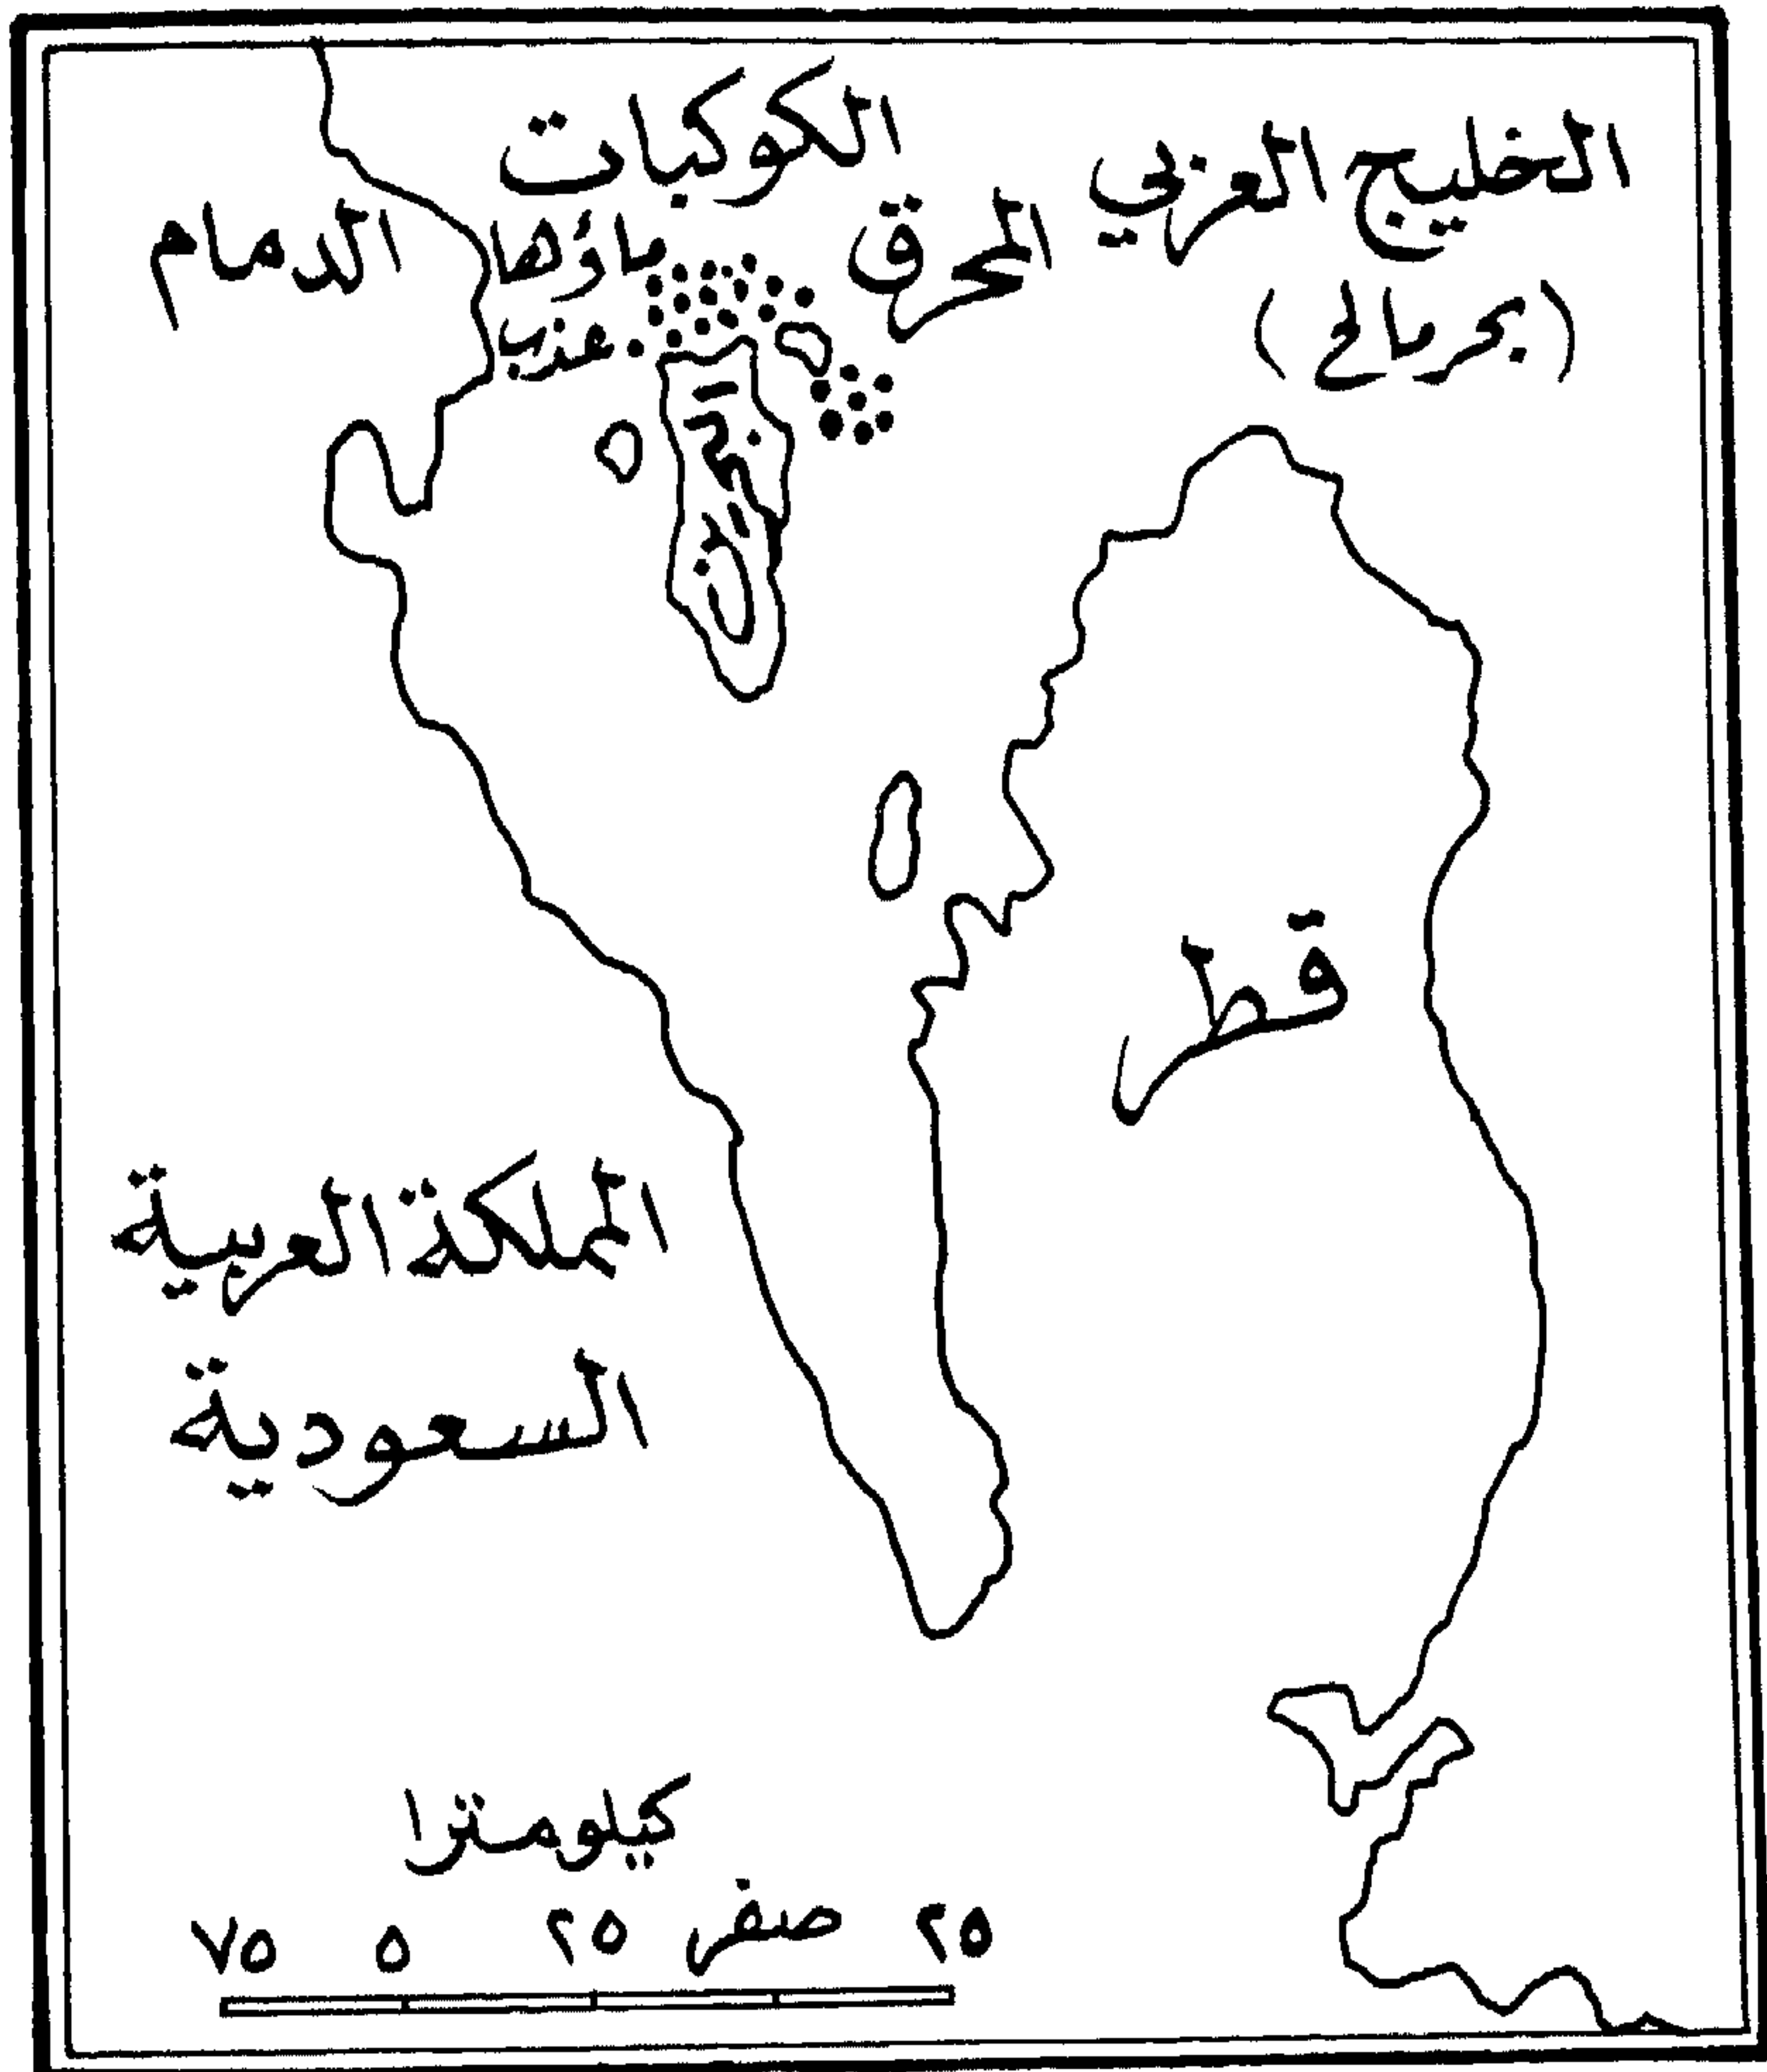 الخليج العربي
(بحر مالح)
الكوكبات
ماؤها
عذب
المحرق
الدمام
البحرين
قطر
المملكة العربية
السعودية
كيلومترا
٧٥ ٥ ٢٥ صفر ٢٥